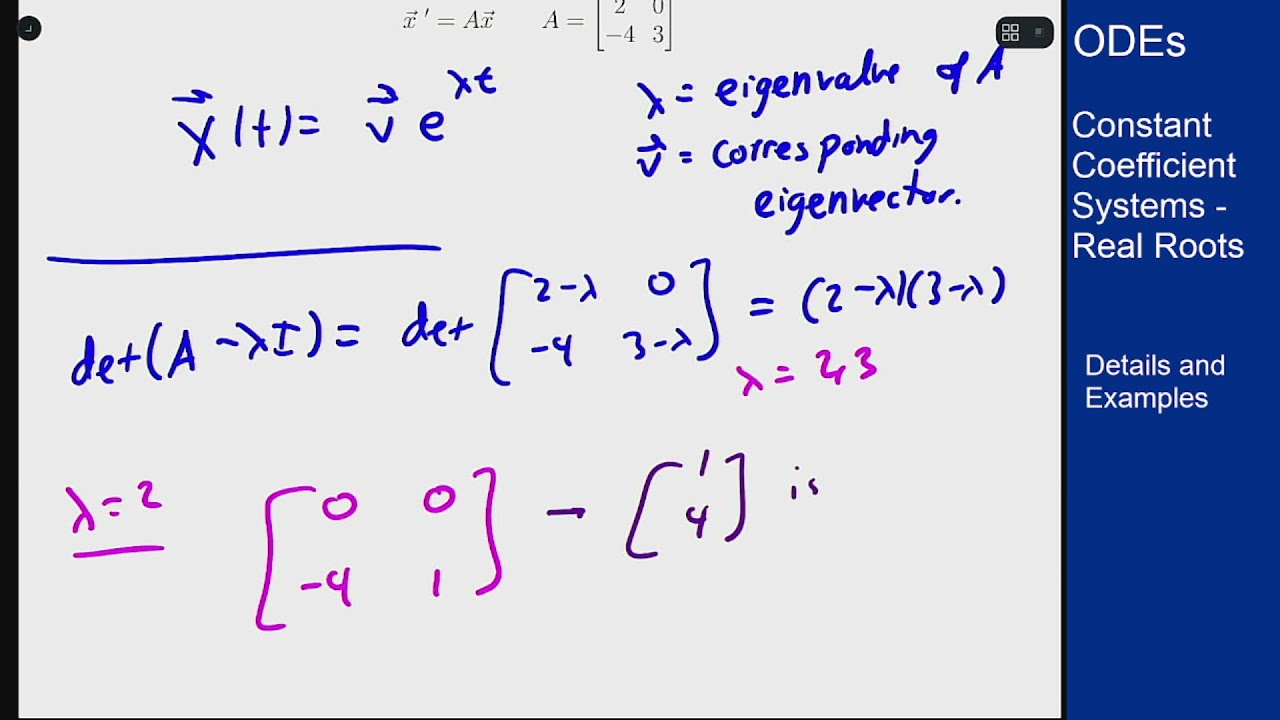 x⃗ ' = Ax⃗   A = [2 0; -4 3]
x⃗(t) = v⃗ e^{λt}
λ = eigenvalue of A
v⃗ = corresponding
eigenvector.
det(A - λI) = det [2-λ 0; -4 3-λ] = (2-λ)(3-λ)
λ = 2,3
λ = 2   [0 0; -4 1] → [1; 4] is
ODEs
Constant
Coefficient
Systems -
Real Roots
Details and
Examples